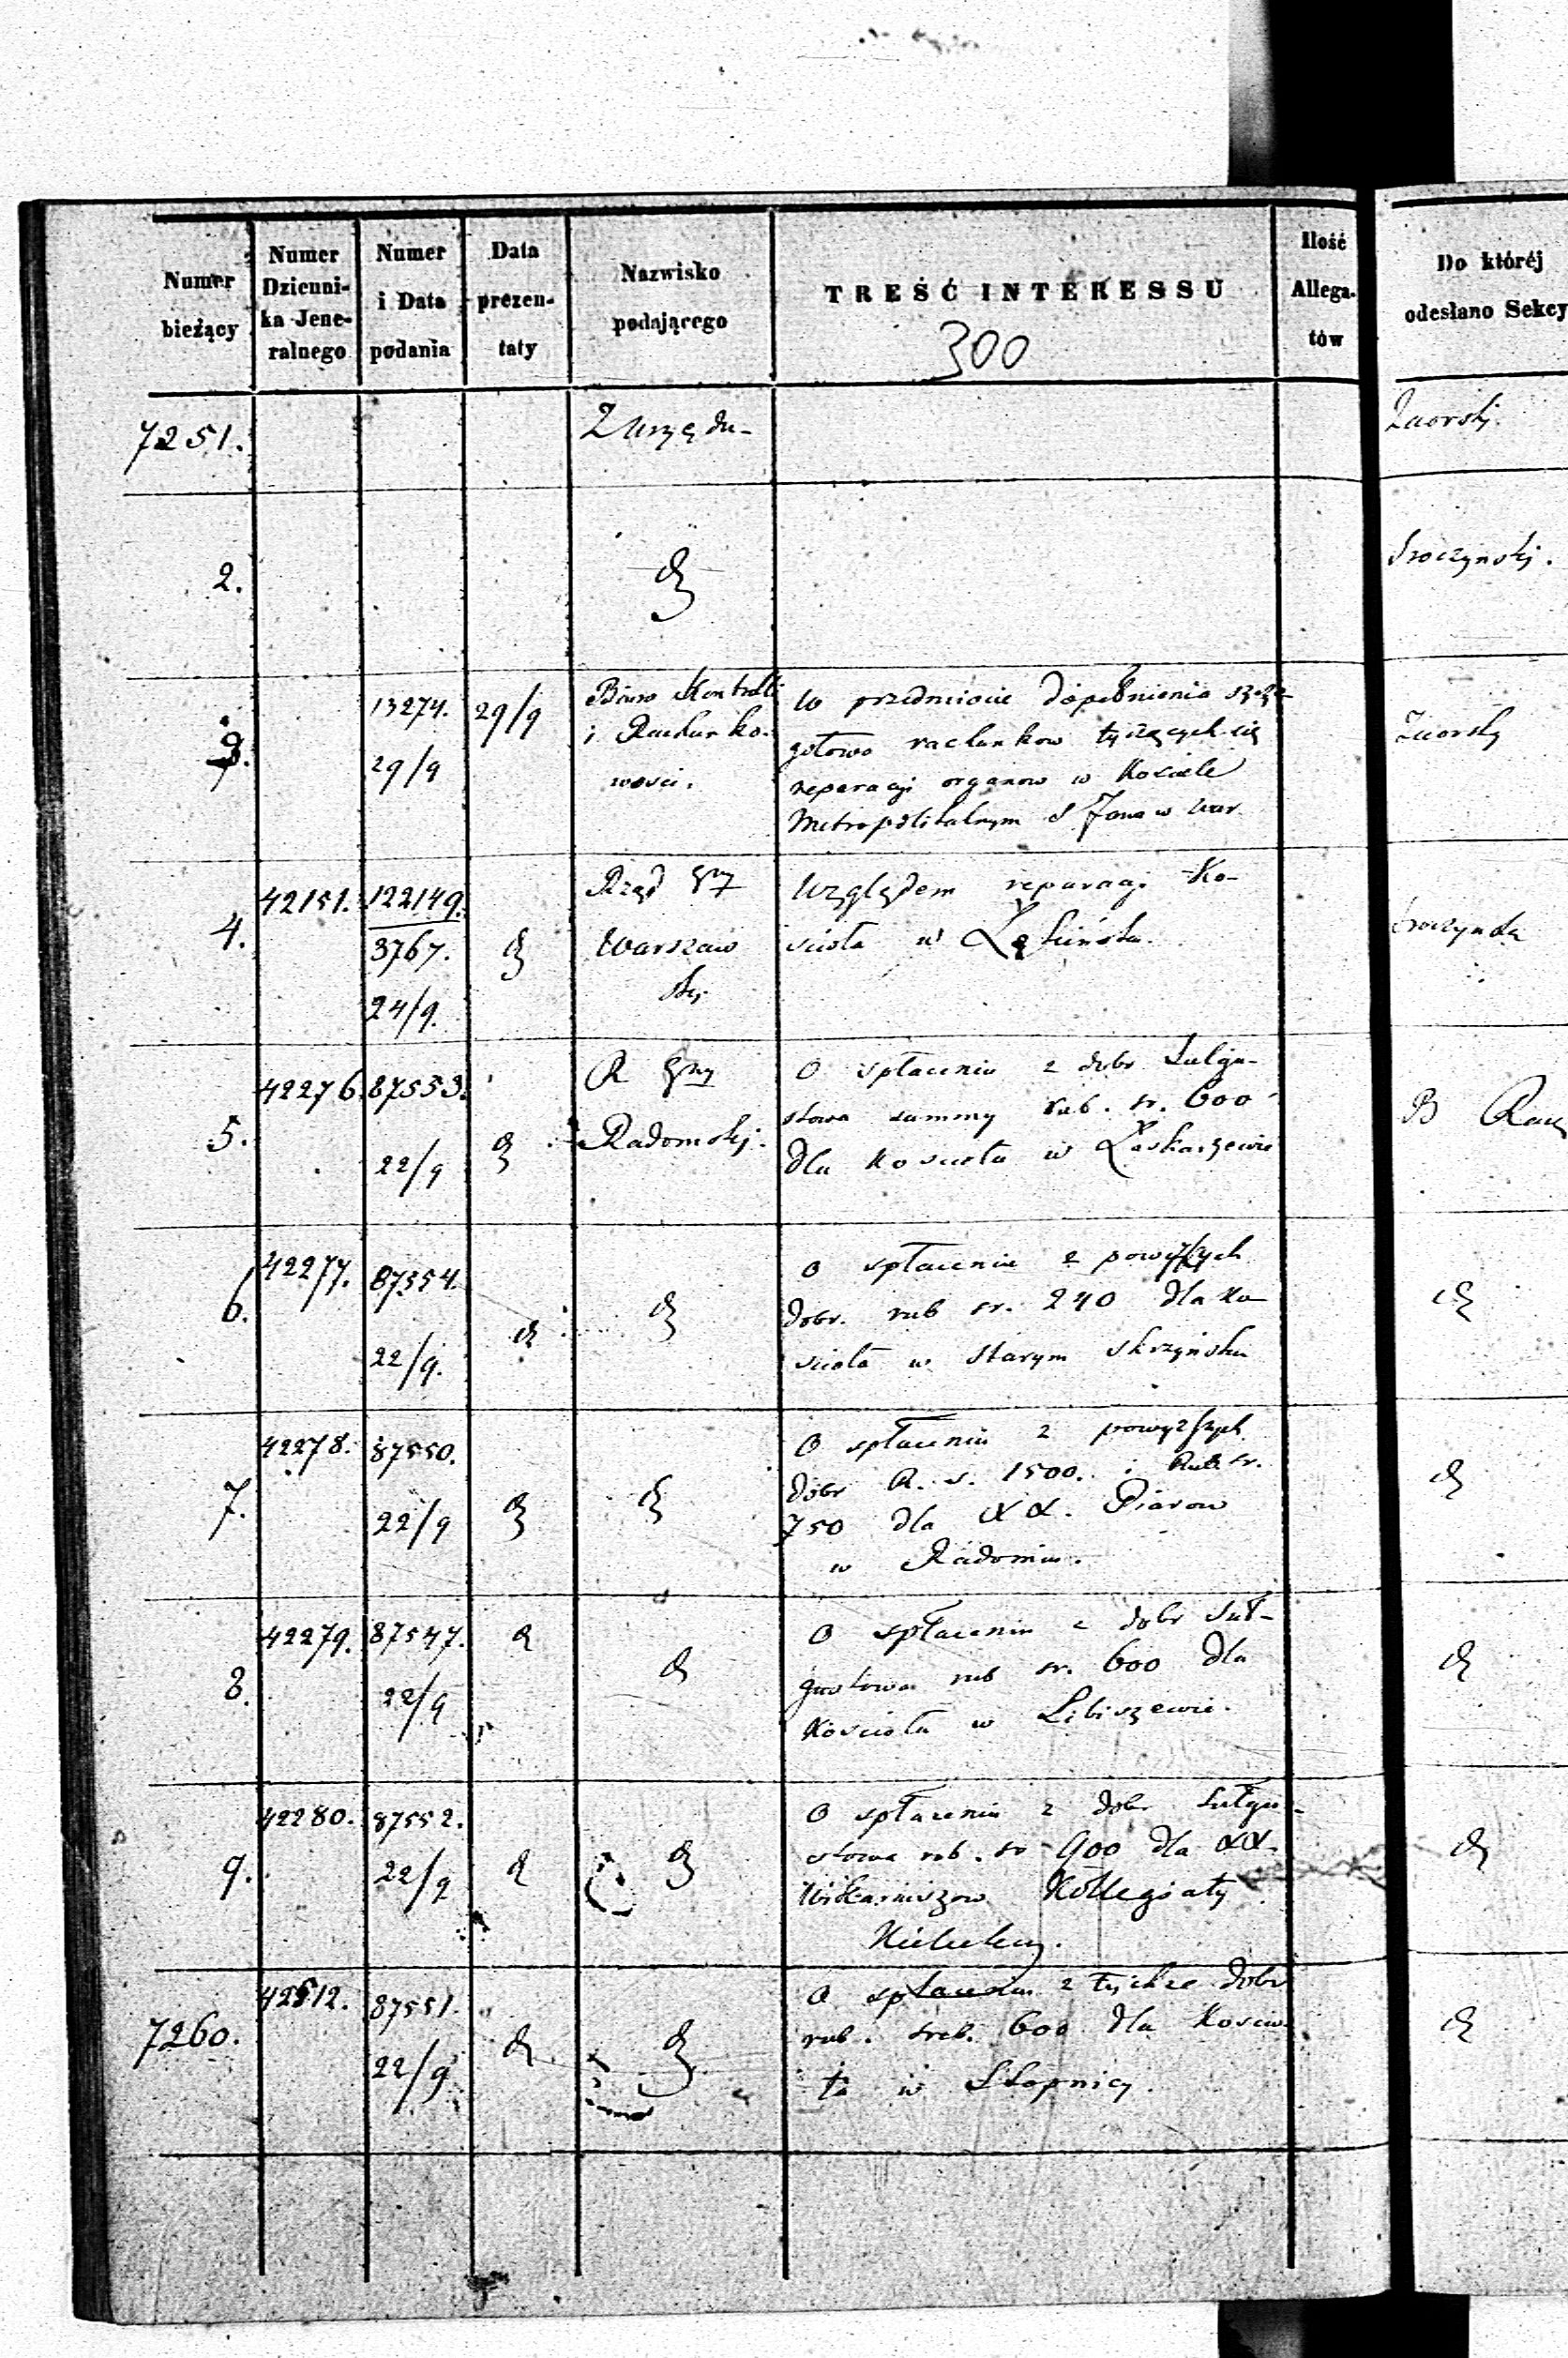 Numer bieżący
Numer Dzienni-ka Jene-ralnego
Numer i Data podania
Data prezen-taty
Nazwisko podającego
TREŚĆ INTERESSU
300
Ilość Allega-tów
Do któréj odesłano Sekcy
7251.
Z urzędu-
2.
3.
13274.
29/9
29/9
Biuro Kontrolli
i Rachunko-
wosci.
W przedmiocie dopełnienia
gołowo rachunkow tyczących się
reparacyi organow w Kosciele
Metropolitalnym S Jana w War
4.
42151.
122149.
3767.
24/9.
Rząd
Warszaw
skj
Względem reparacyi Ko-
scioła w
5.
42276
87553.
22/9
R
Radomskj.
O spłaceniu z dobr Sulgo-
stowa summy rub. sr. 600
dla Kościoła w Łaskarzewie
B
6.
42277.
87554.
22/9.
O spłacenie z powyższych
dobr. rub sr. 240 dla Ko-
scioła w Starym Skrzyńsku
7.
42278.
87550.
22/9
O spłaceniu z powyższych
dobr R. s. 1500. i Rub. sr.
750 dla XX. Piarow
w Radomiu.
8.
42279.
87547.
22/9
O spłaceniu z dobr Suł-
gostowa rub sr. 600 dla
Kościoła w Libiszewie.
9.
42280.
87552.
22/9
O spłaceniu z dobr Sułgo-
stowa rub. sr 900 dla XX.
Wikariuszow Kollegiaty
7260.
42512.
87551.
22/9
O spłaceniu z tychże dobr
rub. sreb. 600 dla Koscio
ła w Stopnicy.